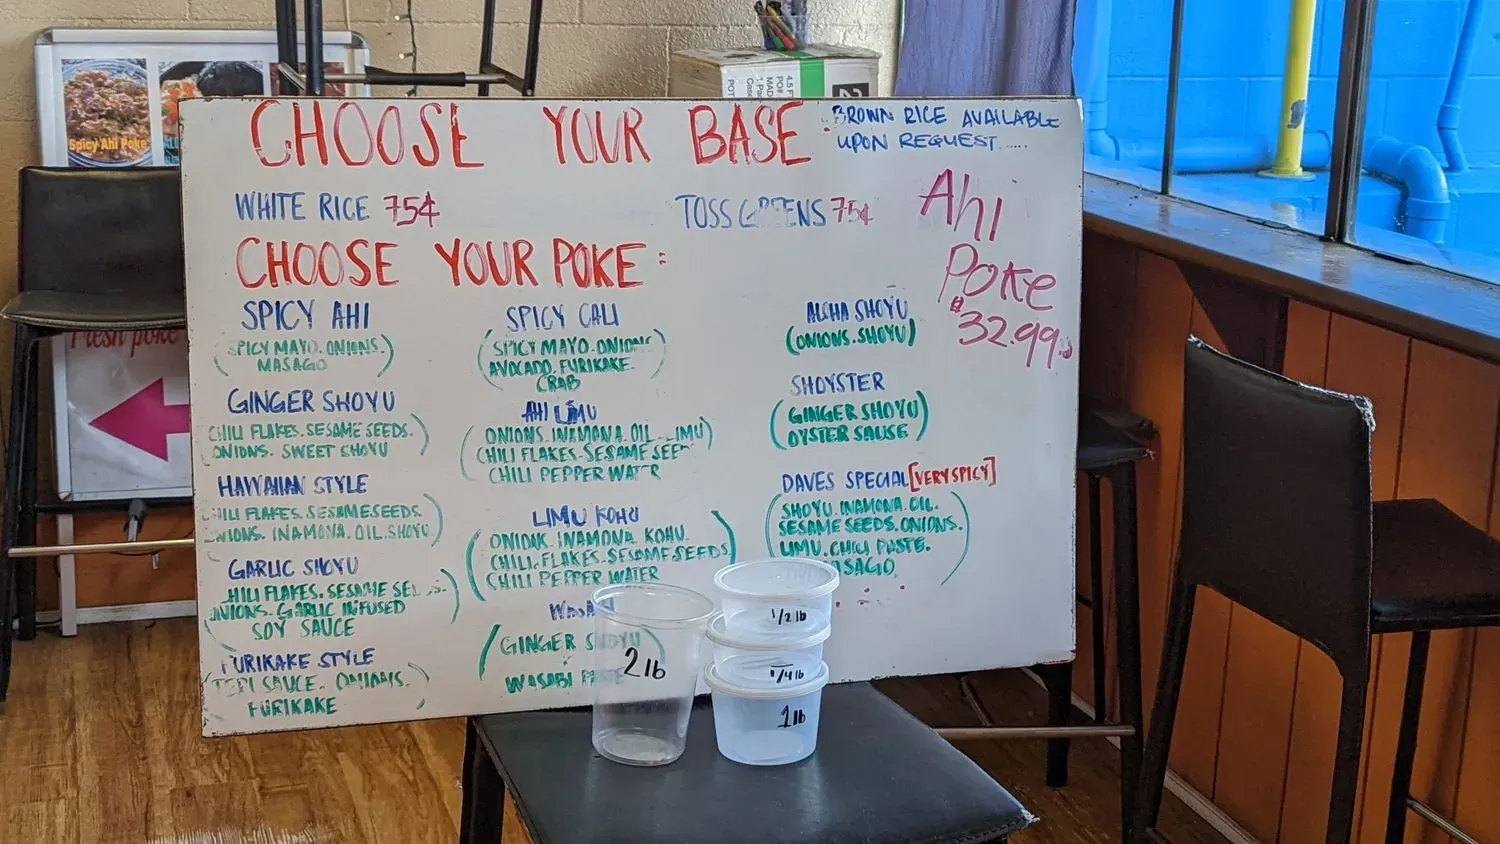 CHOOSE YOUR BASE:
BROWN RICE AVAILABLE
UPON REQUEST.....
WHITE RICE 75¢
TOSS GREENS 75¢
Ahi
Poke
$32.99
CHOOSE YOUR POKE:
SPICY AHI
(SPICY MAYO. ONIONS.
MASAGO)
GINGER SHOYU
CHILI FLAKES. SESAME SEEDS.
ONIONS. SWEET SHOYU)
HAWAIIAN STYLE
CHILI FLAKES. SESAME SEEDS.
ONIONS. INAMONA. OIL. SHOYU)
GARLIC SHOYU
CHILI FLAKES. SESAME
ONIONS. GARLIC INFUSED
SOY SAUCE)
FURIKAKE STYLE
(TERI SAUCE. ONIONS.
FURIKAKE)
SPICY CALI
(SPICY MAYO. ONIONS
AVOCADO. FURIKAKE.
CRAB)
AHI LIMU
(ONIONS. INAMONA. OIL. LIMU
CHILI FLAKES. SESAME SEED
CHILI PEPPER WATER)
LIMU KOHU
(ONIONS. INAMONA. KOHU.
CHILI. FLAKES. SESAME SEEDS
CHILI PEPPER WATER)
WASABI
(GINGER SHOYU
WASABI
ALOHA SHOYU
(ONIONS. SHOYU)
SHOYSTER
(GINGER SHOYU
OYSTER SAUSE)
DAVES SPECIAL [VERY SPICY]
(SHOYU. INAMONA. OIL.
SESAME SEEDS. ONIONS.
LIMU. CHILI PASTE.
MASAGO)
2 lb
1/2 lb
1/4 lb
1 lb
Spicy Ahi Poke
Fresh poke